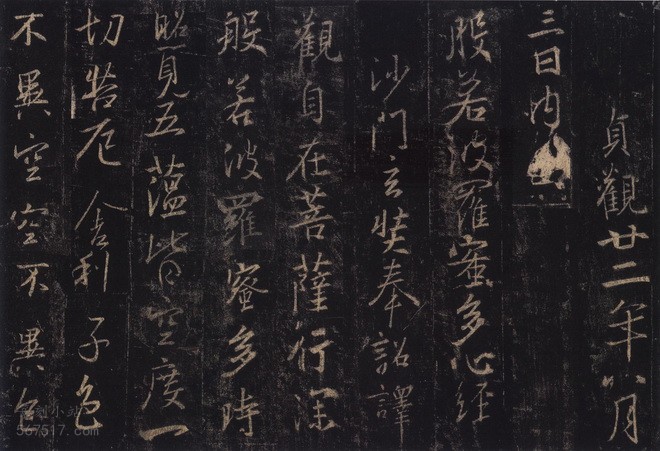 貞觀廿二年八月
三日內出
般若波羅蜜多心經
沙門玄奘奉詔譯
觀自在菩薩行深
般若波羅蜜多時
照見五蘊皆空度一
切苦厄舍利子色
不異空空不異色
567517.com